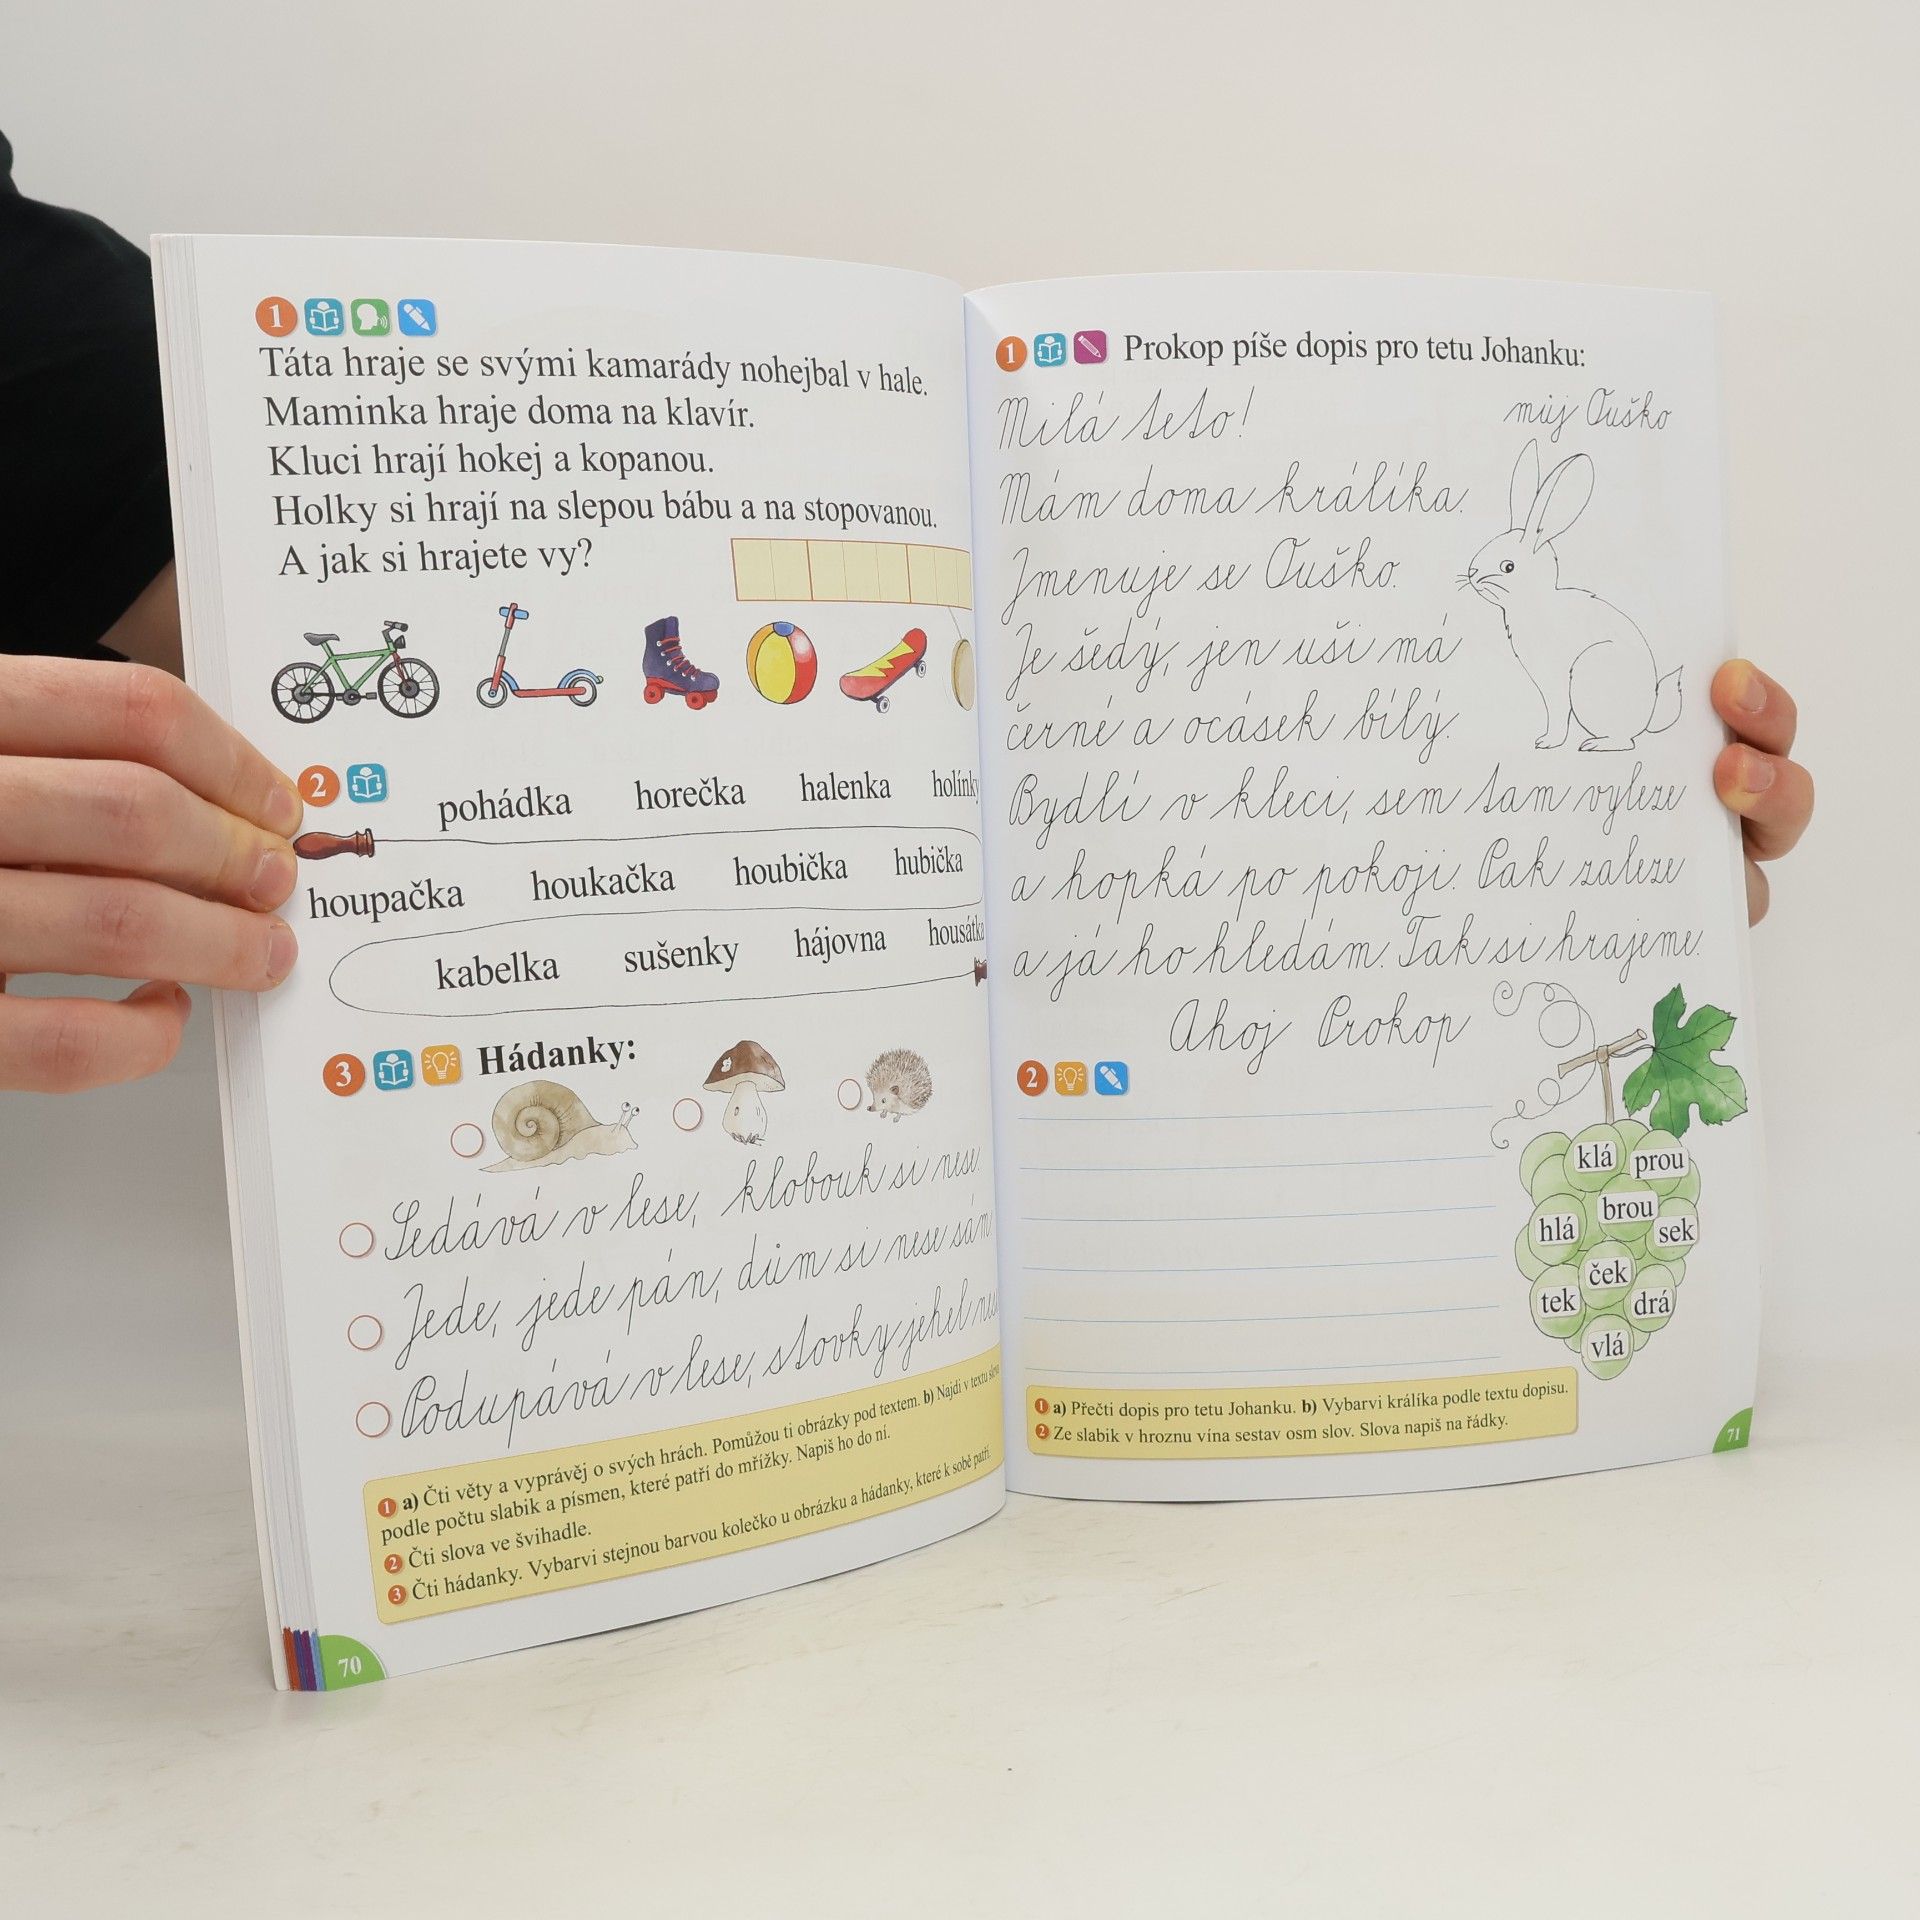 1
Táta hraje se svými kamarády nohejbal v hale.
Maminka hraje doma na klavír.
Kluci hrají hokej a kopanou.
Holky si hrají na slepou bábu a na stopovanou.
A jak si hrajete vy?
2
pohádka horečka halenka holínky
houpačka houkačka houbička hubička
kabelka sušenky hájovna housátka
3 Hádanky:
Sedává v lese, klobouk si nese.
Jede, jede pán, dům si nese sám
Podupává v lese, stovky jehel
1 a) Čti věty a vyprávěj o svých hrách. Pomůžou ti obrázky pod textem. b) Najdi v textu slova
podle počtu slabik a písmen, které patří do mřížky. Napiš ho do ní.
2 Čti slova ve švihadle.
3 Čti hádanky. Vybarvi stejnou barvou kolečko u obrázku a hádanky, které k sobě patří.
70
1 Prokop píše dopis pro tetu Johanku:
Milá teto!
můj Ouško
Mám doma králíka.
Jmenuje se Ouško.
Je šedý, jen uši má
černé a ocásek bílý.
Bydlí v kleci, sem tam vyleze
a hopká po pokoji. Pak zaleze
a já ho hledám. Tak si hrajeme.
Ahoj Prokop
2
klá prou
brou
hlá sek
ček
tek drá
vlá
1 a) Přečti dopis pro tetu Johanku. b) Vybarvi králíka podle textu dopisu.
2 Ze slabik v hroznu vína sestav osm slov. Slova napiš na řádky.
71